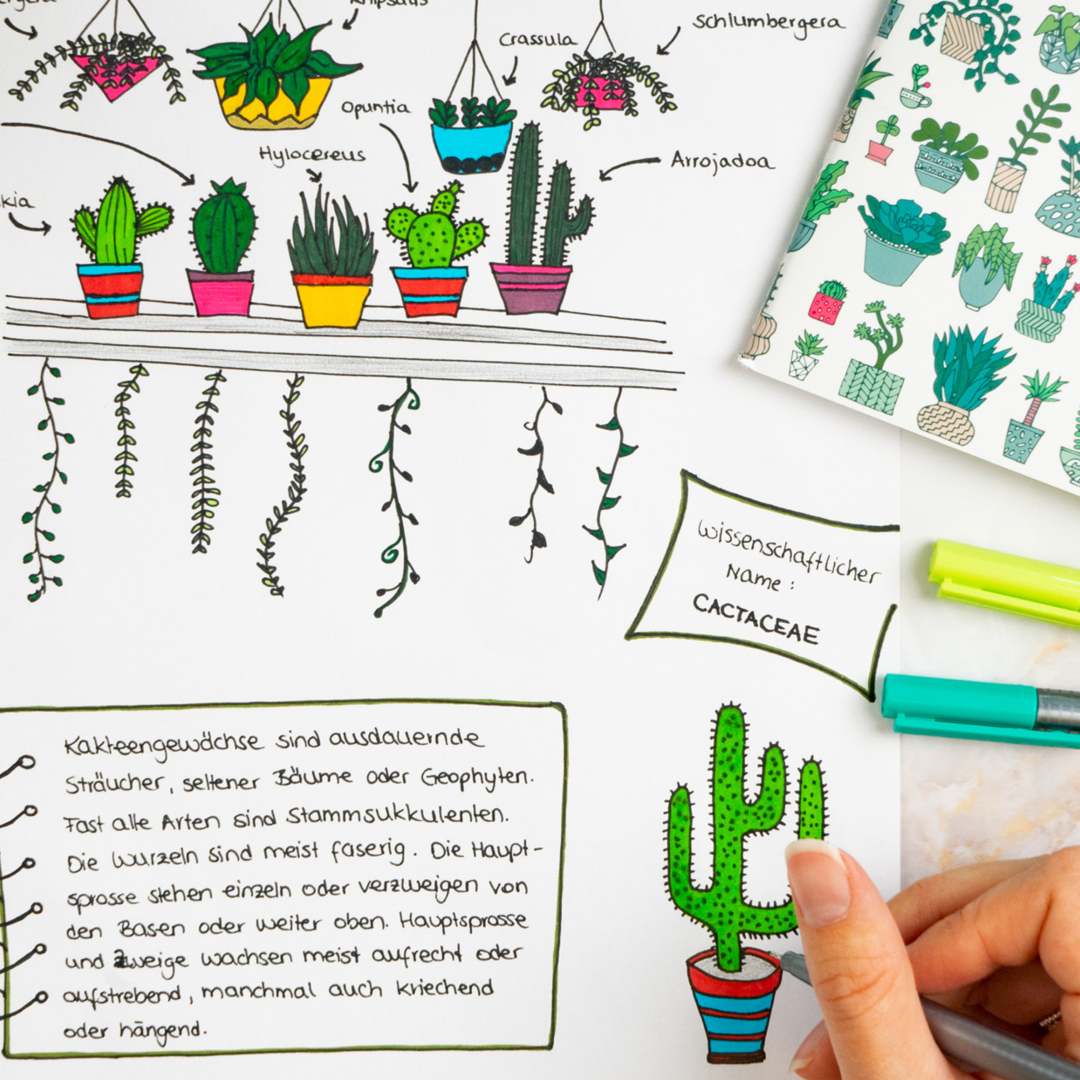 Rhipsalis
Schlumbergera
Crassula
Opuntia
Hylocereus
Arrojadoa
Wissenschaftlicher
Name :
CACTACEAE
Kakteengewächse sind ausdauernde
Sträucher, seltener Bäume oder Geophyten.
Fast alle Arten sind Stammsukkulenten.
Die Wurzeln sind meist faserig. Die Haupt-
sprosse stehen einzeln oder verzweigen von
den Basen oder weiter oben. Hauptsprosse
und Zweige wachsen meist aufrecht oder
aufstrebend, manchmal auch kriechend
oder hängend.